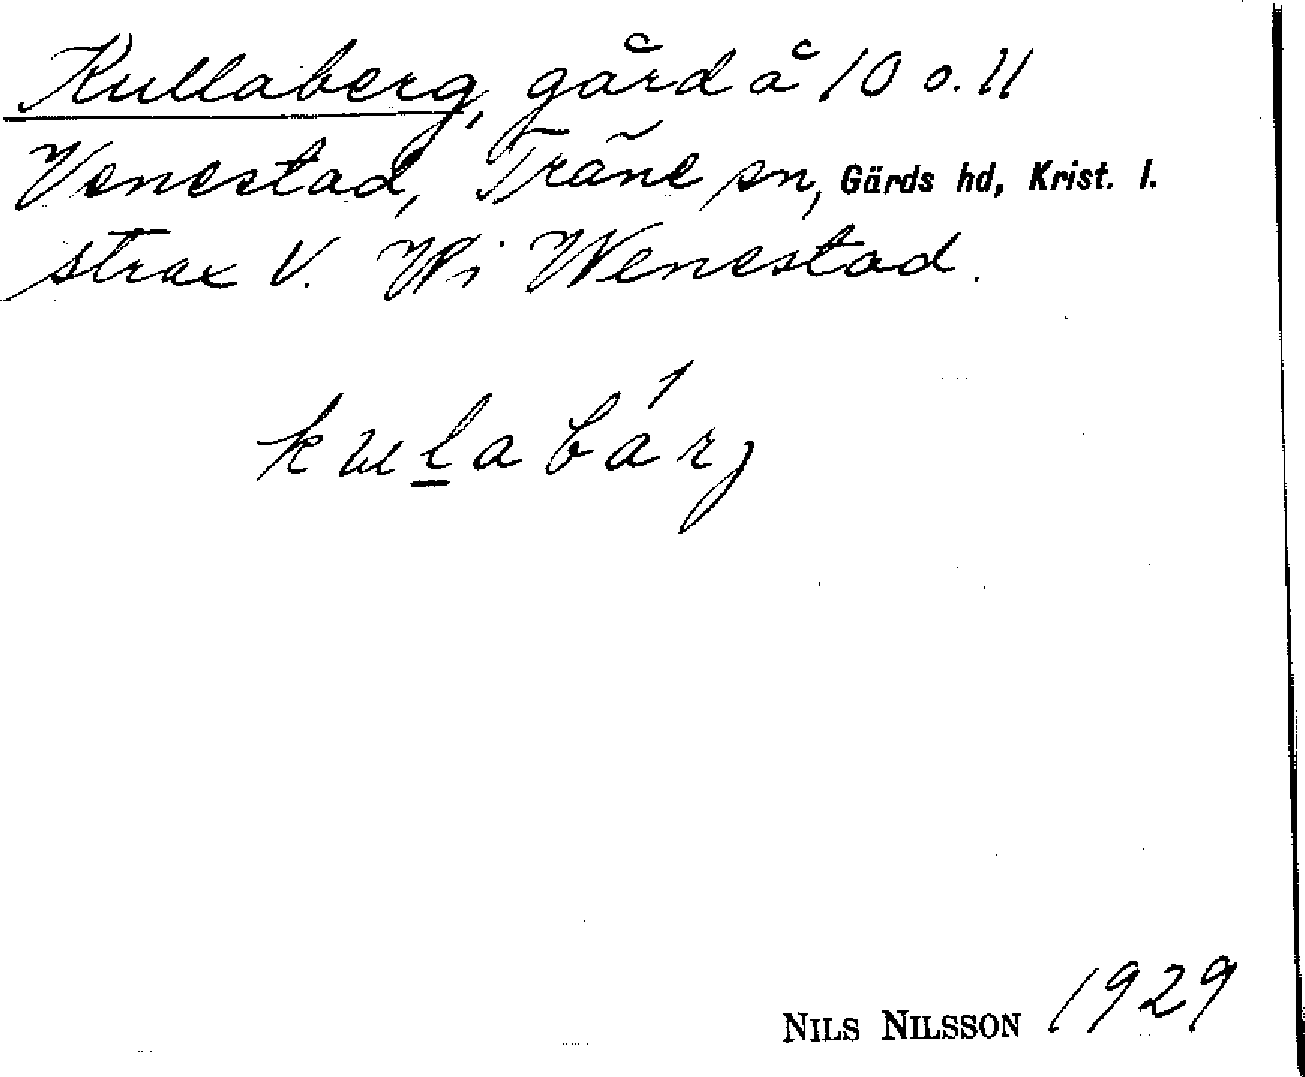 Kullaberg, gård å 10 o. 11
Venestad, Träne sn, Gärds hd, Krist. l.
strax V. W i Wenestad.
kulabárg
NILS NILSSON 1929